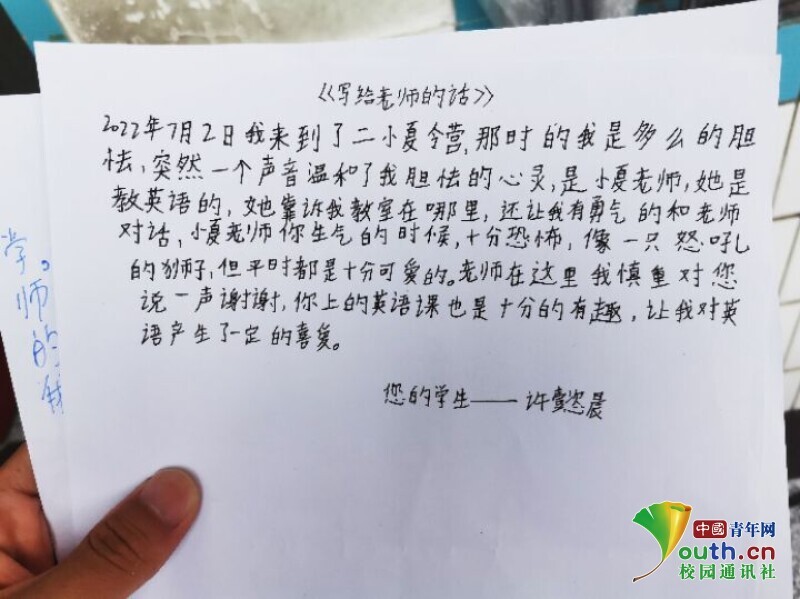 《写给老师的话》
2022年7月2日我来到了二小夏令营,那时的我是多么的胆
怯,突然一个声音温和了我胆怯的心灵,是小夏老师,她是
教英语的,她靠诉我教室在哪里,还让我有勇气的和老师
对话,小夏老师你生气的时候,十分恐怖,像一只怒吼
的狮子,但平时都是十分可爱的。老师在这里我慎重对您
说一声谢谢,你上的英语课也是十分的有趣,让我对英
语产生了一定的喜爱。
您的学生——许晨
学。
师
的
中国青年网
Youth.cn
校园通讯社